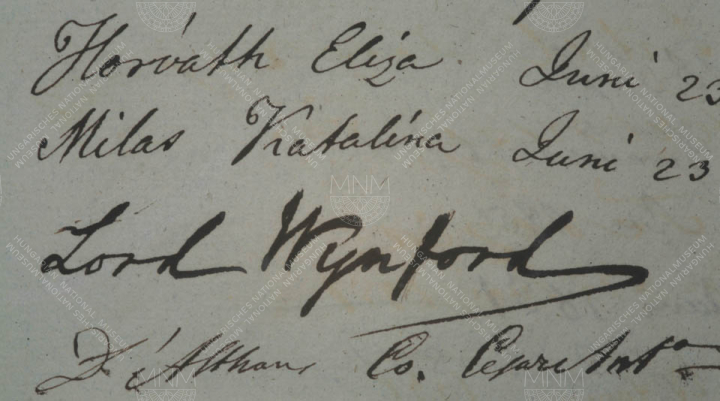 Horváth Eliza Juni 23
Milas Katalina Juni 23
Lord Wynford
D'Althann Co. Cesare Ant°
MNM
HUNGARIAN NATIONAL MUSEUM
UNGARISCHES NATIONALMUSEUM